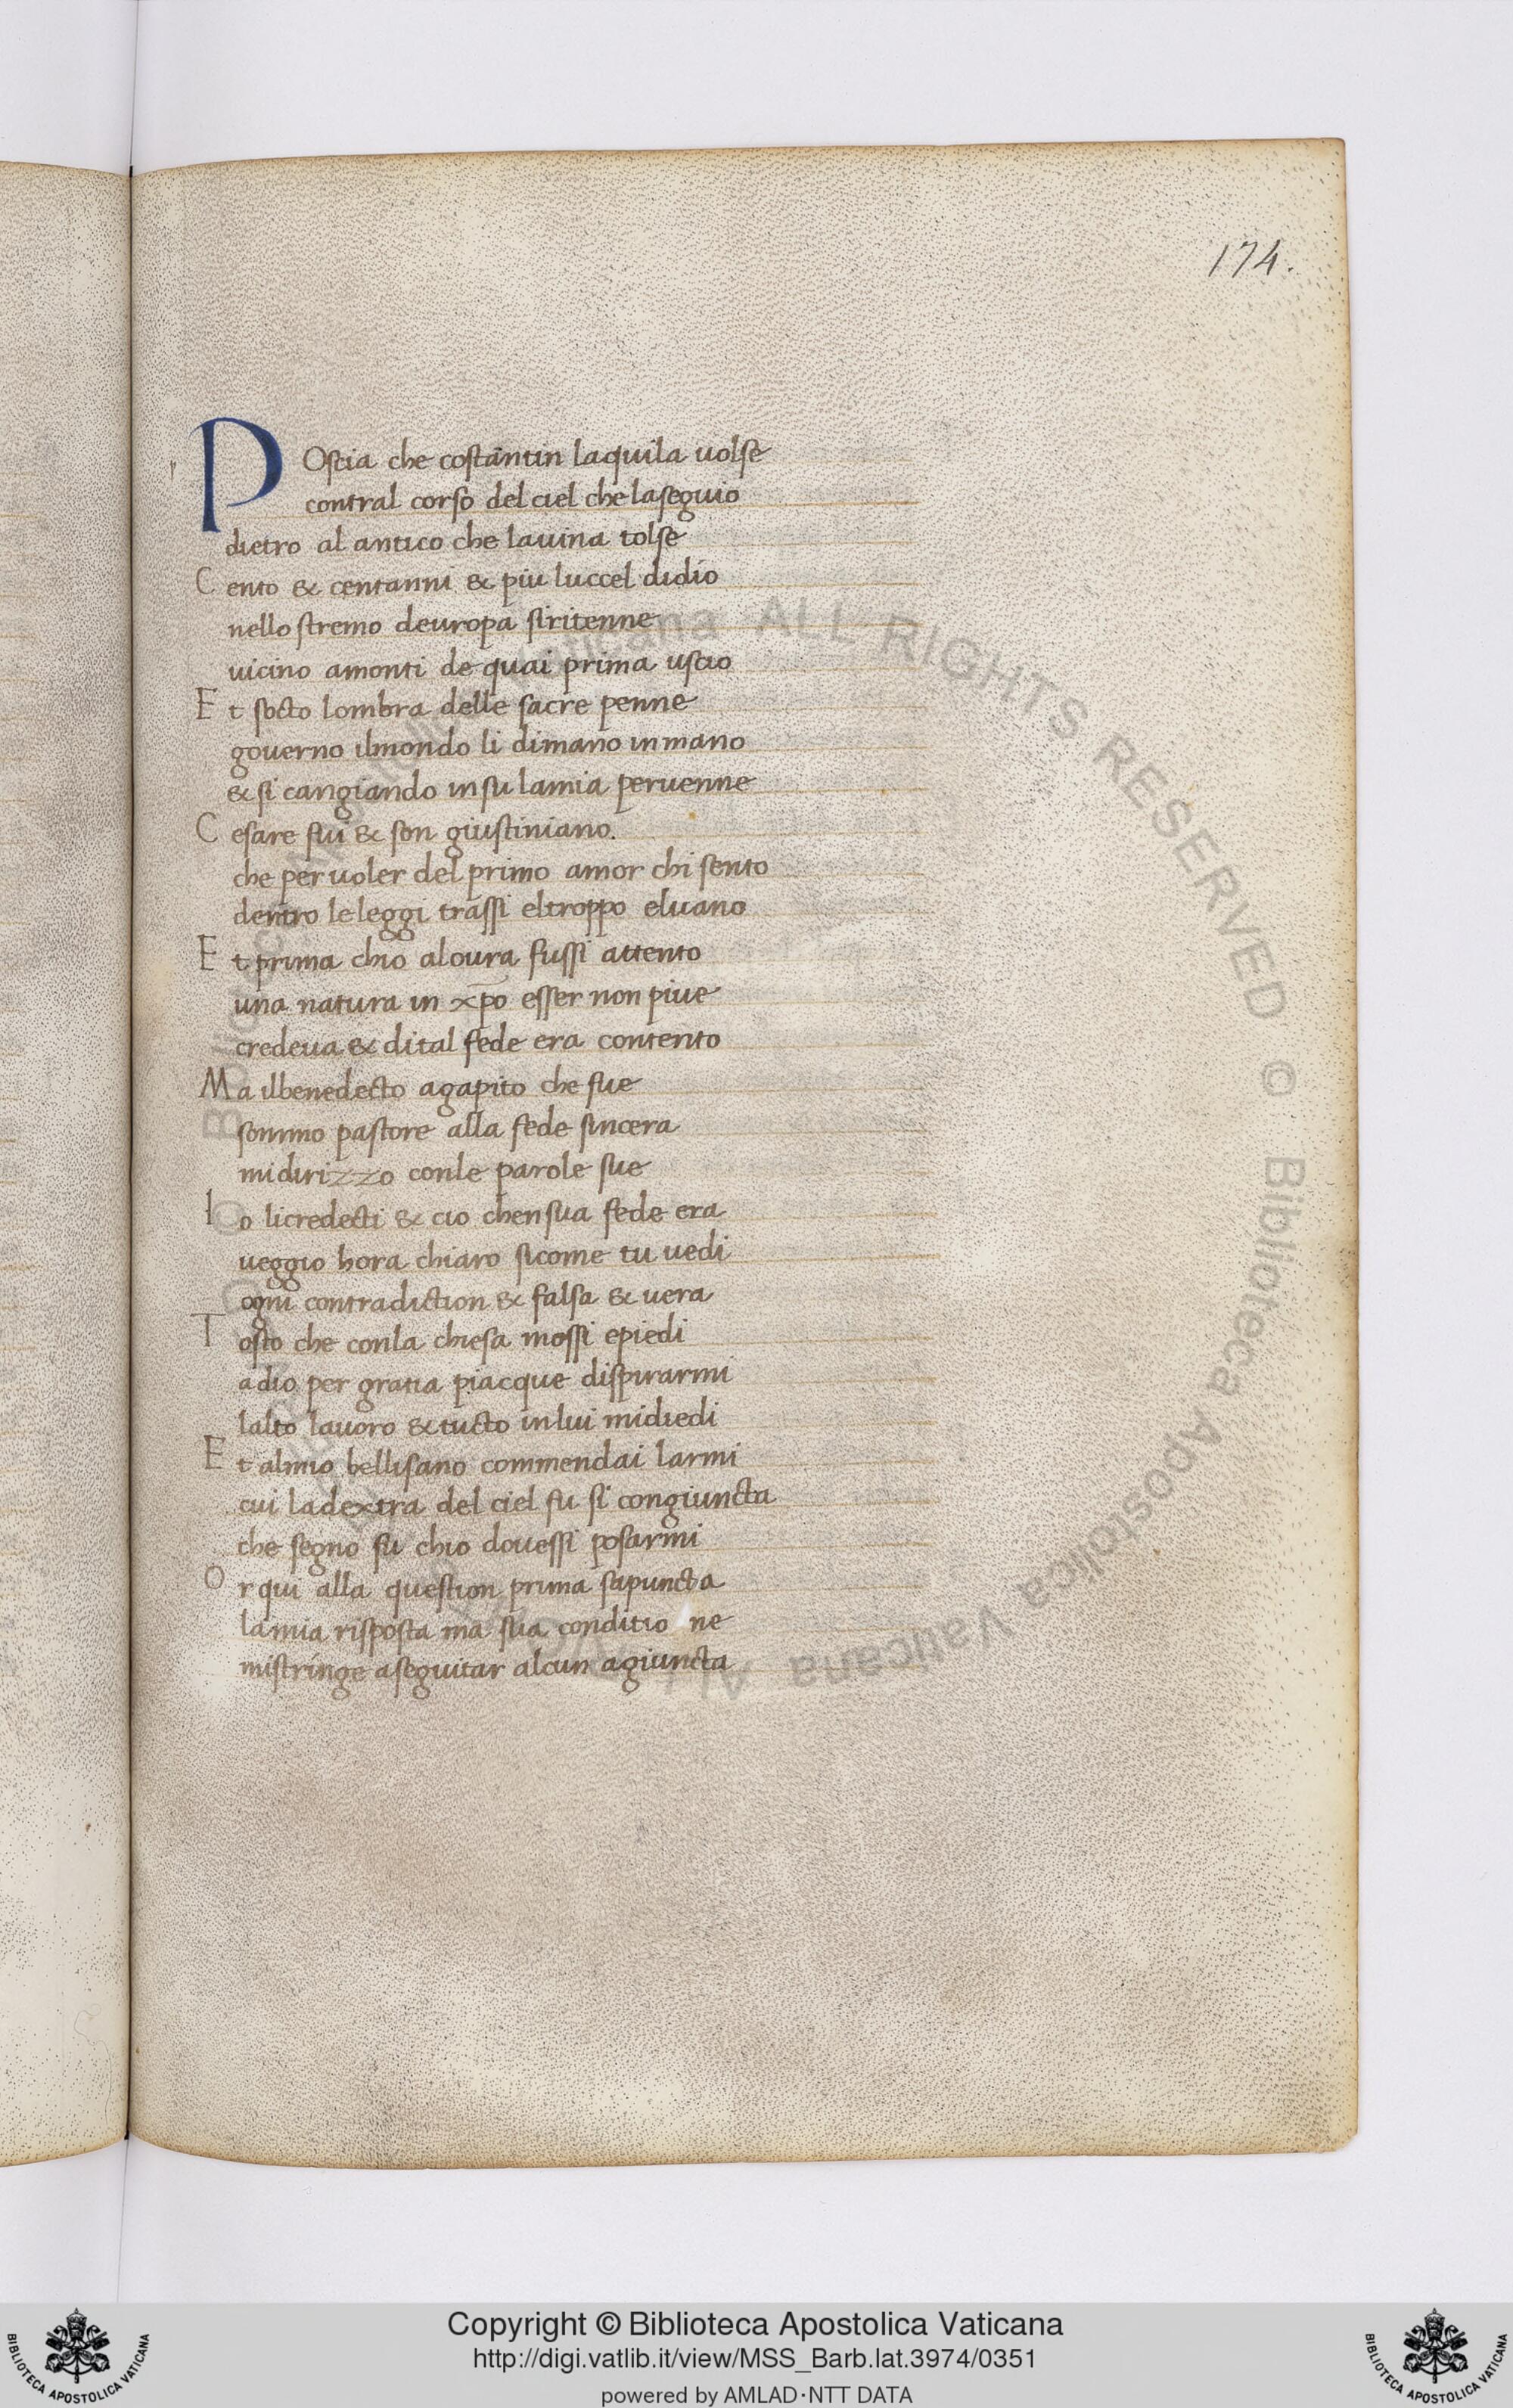 174.
POscia che costantin laquila uolse
contral corso del ciel che laseguio
dietro al antico che lauina tolse
Cento & centanni & piu luccel didio
nello stremo deuropa siritenne
uicino amonti de quai prima uscio
Et socto lombra delle sacre penne
gouerno ilmondo li dimano inmano
& si cangiando insu lamia peruenne
Cesare fui & son giustiniano.
che per uoler del primo amor chi sento
dentro le leggi trassi eltroppo eluano
Et prima chio aloura fussi attento
una natura in xp̄o esser non piue
credeua & dital fede era contento
Ma ilbenedecto agapito che fue
sommo pastore alla fede sincera
midirizzo conle parole sue
Io licredecti & cio chensua fede era
ueggio hora chiaro sicome tu uedi
ogni contradiction & falsa & uera
Tosto che conla chiesa mossi epiedi
adio per gratia piacque dispirarmi
lalto lauoro & tucto inlui midiedi
Et almio bellisano commendai larmi
cui ladextra del ciel fu si congiuncta
che segno fu chio douessi posarmi
Or qui alla question prima sapuncta
lamia risposta ma sua conditio ne
mistringe aseguitar alcun agiuncta
Biblioteca Apostolica Vaticana ALL RIGHTS RESERVED © Biblioteca Apostolica Vaticana
Copyright © Biblioteca Apostolica Vaticana
http://digi.vatlib.it/view/MSS_Barb.lat.3974/0351
powered by AMLAD·NTT DATA
BIBLIOTECA APOSTOLICA VATICANA
BIBLIOTECA APOSTOLICA VATICANA